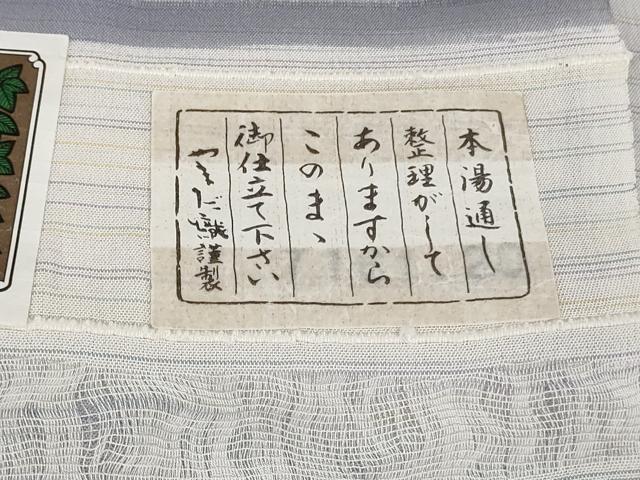 本湯通し
整理がして
ありますから
このまゝ
御仕立て下さい
やまだ織謹製